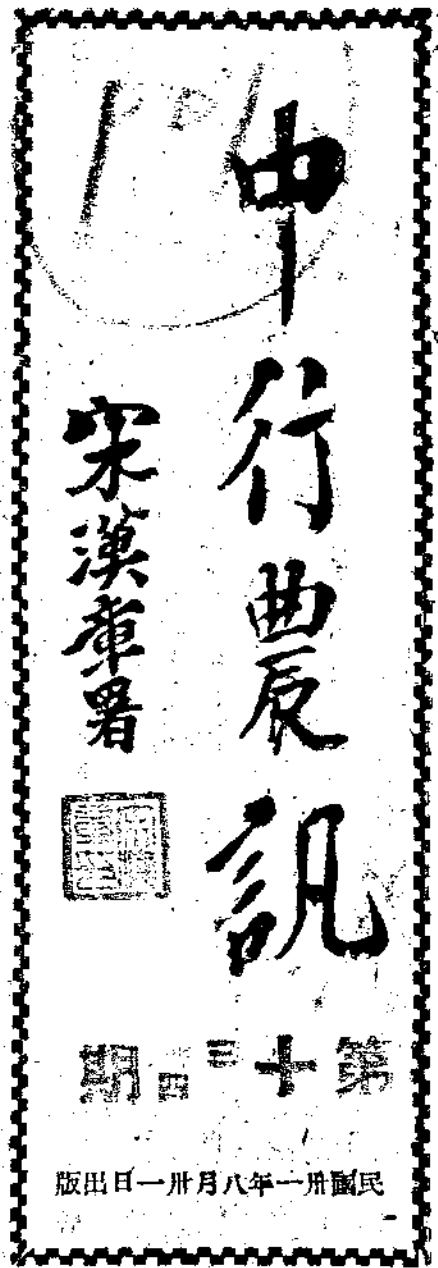 中行農訊
宋漢章署
第十三四期
民國卅一年八月卅一日出版